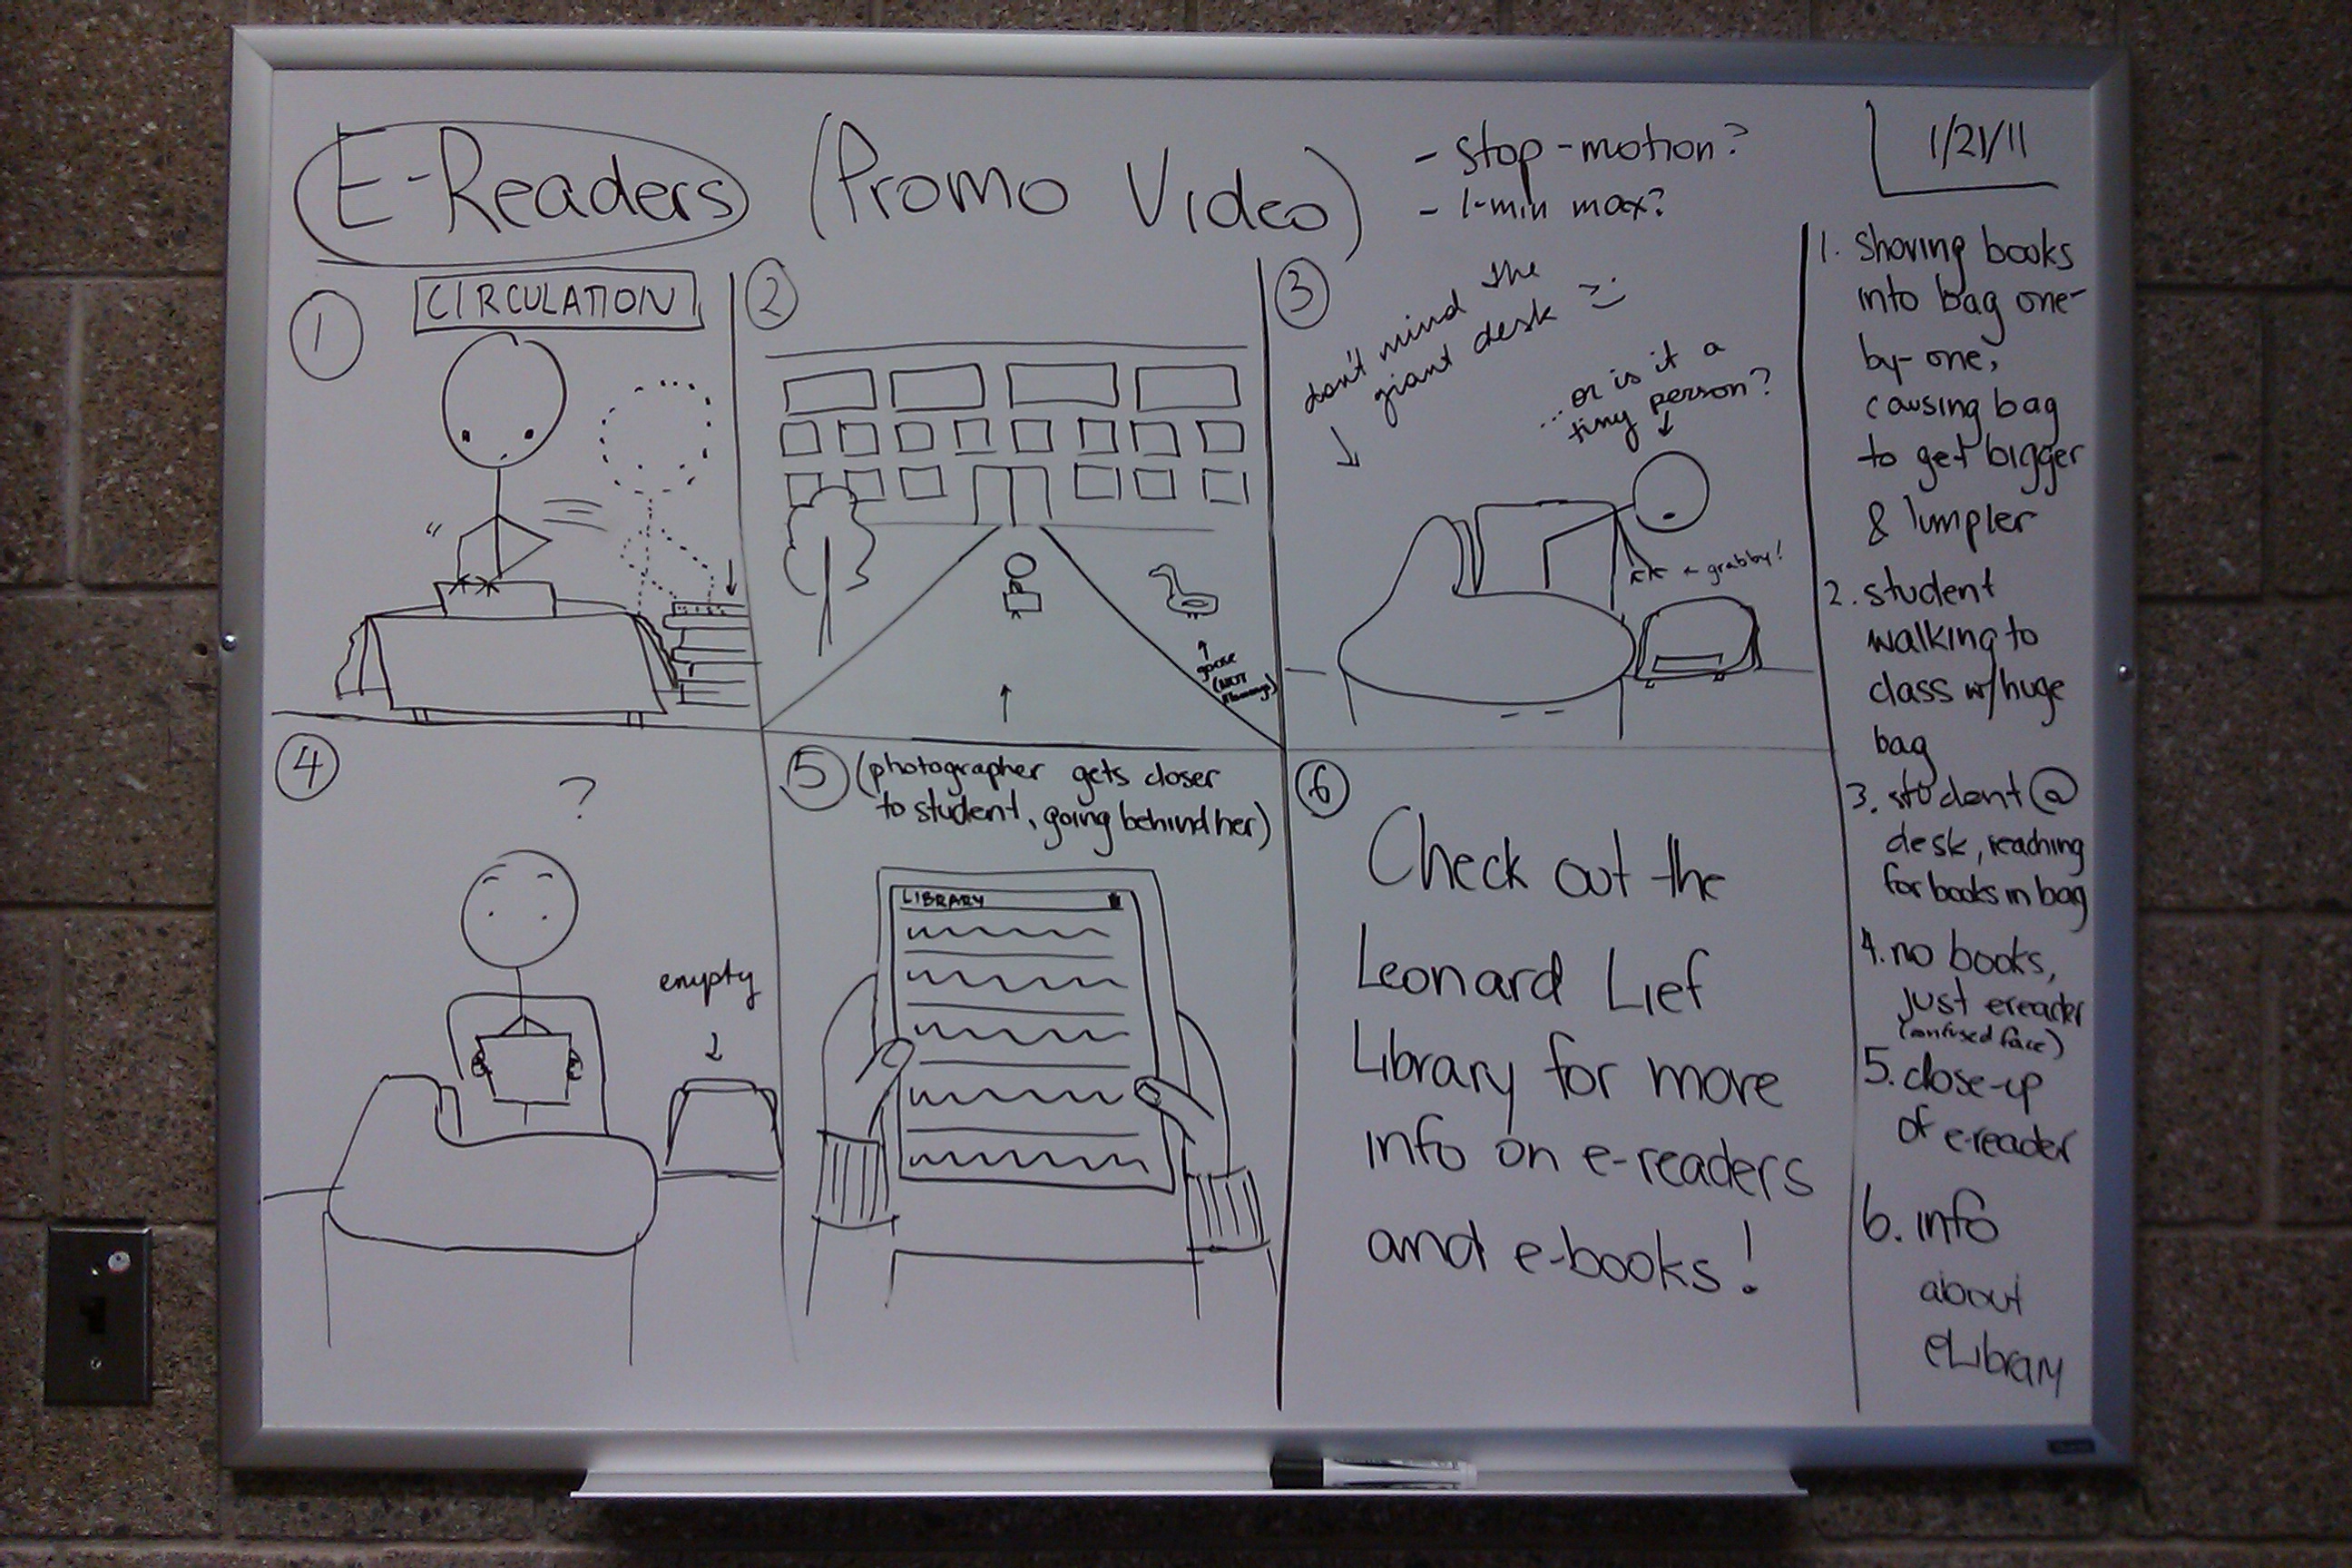 E-Readers (Promo Video)
- stop-motion?
- 1-min max?
1/21/11
1
CIRCULATION
2
goose
(NOT
flamingo)
3
don't mind the
giant desk =)
...or is it a
tiny person?
← grabby!
4
?
empty
5 (photographer gets closer
to student, going behind her)
LIBRARY
6
Check out the
Leonard Lief
Library for more
info on e-readers
and e-books!
1. shoving books
into bag one-
by-one,
causing bag
to get bigger
& lumpier
2. student
walking to
class w/huge
bag
3. student @
desk, reaching
for books in bag
4. no books,
just ereader
(confused face)
5. close-up
of e-reader
6. info
about
eLibrary